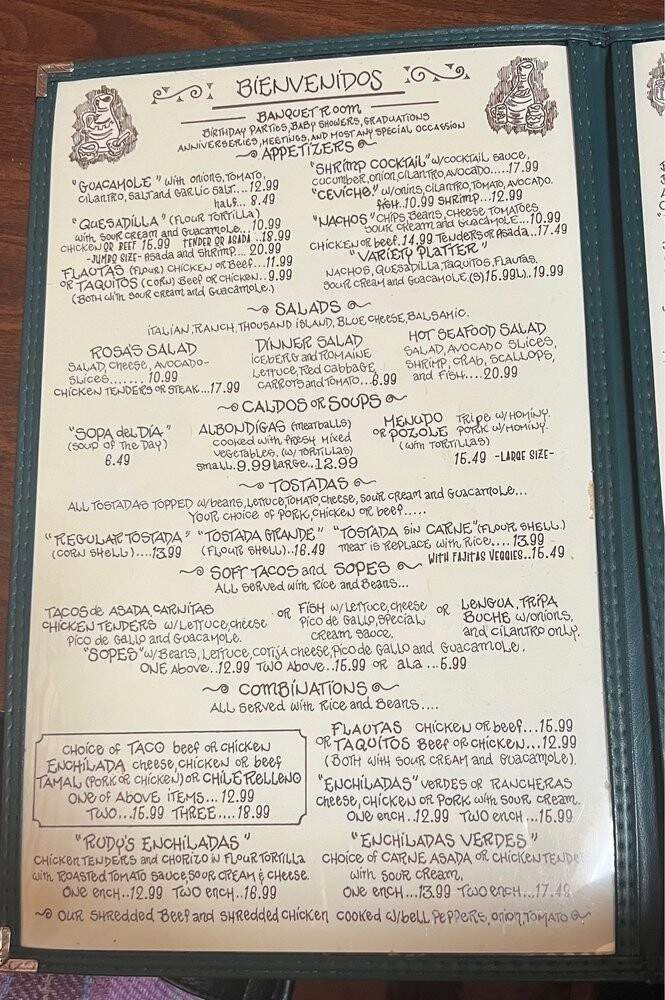 BIENVENIDOS
BANQUET ROOM
BIRTHDAY PARTIES, BABY SHOWERS, GRADUATIONS
ANNIVERSERIES, MEETINGS, AND MOST ANY SPECIAL OCCASSION
APPETIZERS
"GUACAMOLE" with onions, tomato,
cilantro, salt and garlic salt....12.99
half... 8.49
"QUESADILLA" (FLOUR TORTILLA)
with sour cream and Guacamole...10.99
CHICKEN OR BEEF 15.99 TENDER OR ASADA..18.99
-JUMBO SIZE- Asada and Shrimp.... 20.99
FLAUTAS (FLOUR) CHICKEN OR Beef...11.99
OR TAQUITOS (CORN) Beef OR CHICKEN..9.99
(BOTH with SOUR CREAM and Guacamole.)
"SHRIMP COCKTAIL" w/cocktail sauce,
cucumber, onion, cilantro, avocado.....17.99
"CEVICHE" w/onins, cilantro, tomato, avocado.
fish.10.99 SHRIMP...12.99
"NACHOS" CHIPS Beans, cheese Tomatoes
Sour cream and Guacamole...10.99
CHICKEN or beef.14.99 Tenders or Asada..17.49
"VARIETY PLATTER"
NACHOS, QUESADILLA, TAQUITOS, FLAUTAS.
Sour cream and Guacamole.(S) 15.99 L)..19.99
SALADS
ITALIAN, RANCH, THOUSAND ISLAND, BLUE CHEESE, BALSAMIC.
ROSA'S SALAD
SALAD, cheese, AVOCADO-
SLICES....... 10.99
CHICKEN TENDERS OR STEAK...17.99
DINNER SALAD
ICEBERG and ROMAINE
Lettuce, Red cabbage,
CARROTS and TOMATO...6.99
HOT SEAFOOD SALAD
SALAD, AVOCADO SLICES,
SHRIMP, CRAB, SCALLOPS,
and FISH....20.99
CALDOS OR SOUPS
"SOPA del DÍA"
(Soup of The Day)
6.49
ALBONDIGAS (meatballs)
cooked with fresh mixed
vegetables. (w/ TORTILLAS)
small..9.99 LARGE..12.99
MENUDO Tripe w/Hominy.
OR POZOLE PORK w/Hominy.
(with TORTILLAS)
15.49 -LARGE SIZE-
TOSTADAS
ALL TOSTADAS TOPPED w/beans, Lettuce, Tomato, cheese, sour cream and Guacamole...
YOUR choice of PORK, chicken or beef.....
"REGULAR TOSTADA"
(CORN SHELL)....13.99
"TOSTADA GRANDE"
(FLOUR SHELL)..16.49
"TOSTADA SIN CARNE" (FLOUR SHELL.)
meat is REPLACE with Rice.... 13.99
WITH FAJITAS VEGGIES..15.49
SOFT TACOS and SOPES
ALL SERVED with Rice and Beans...
TACOS de ASADA, CARNITAS
CHICKEN TENDERS w/Lettuce, cheese
Pico de Gallo and Guacamole.
OR FISH w/Lettuce, cheese
Pico de Gallo, Special
cream sauce.
OR LENGUA, TRIPA
BUCHE w/onions,
and cilantro only.
"SOPES" w/Beans, Lettuce, cotija cheese, Pico de Gallo and Guacamole.
ONE Above..12.99 TWO Above..15.99 OR ala ...5.99
COMBINATIONS
ALL SERVED with Rice and Beans....
choice of TACO beef or chicken
ENCHILADA cheese, chicken or beef
TAMAL (PORK OR CHICKEN) OR CHILE RELLENO
ONE of Above items... 12.99
TWO...15.99 THREE....18.99
FLAUTAS CHICKEN OR beef...15.99
OR TAQUITOS Beef OR chicken...12.99
(BOTH with SOUR CREAM and Guacamole).
"ENCHILADAS" VERDES OR RANCHERAS
cheese, chicken or PORK with sour cream.
ONE ench..12.99 Two ench...15.99
"RUDY'S ENCHILADAS"
CHICKEN TENDERS and CHORIZO in FLOUR TORTILLA
with ROASTED TOMATO sauce, SOUR CREAM & cheese.
ONE ench..12.99 Two ench..16.99
"ENCHILADAS VERDES"
CHOICE of CARNE ASADA or CHICKEN TENDE
with SOUR CREAM,
ONE ench...13.99 Two ench...17.49
OUR SHREDDED BEEF and SHREDDED CHICKEN COOKED w/bell PEPPERS, ONION, TOMATO